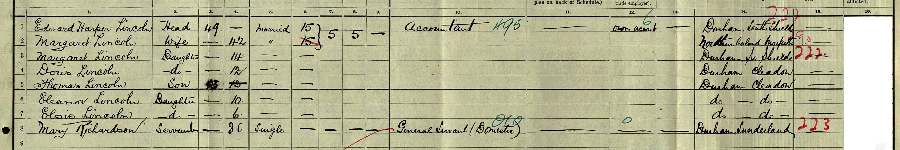 1 Edward Harper Lincoln Head 49 Married 15 5 5 — Accountant 495 own account 6 Durham South Shields
2 Margaret Lincoln Wife — 42 " 15
3 Margaret Lincoln Daughter — 14 Durham So Shields 222
4 Doris Lincoln — do — 12 Durham Cleadon
5 Thomas Lincoln Son Durham Cleadon
6 Eleanor Lincoln Daughter — 10 do — do —
7 Lincoln — d. — 6 do do —
8 Mary Richardson Servant — 36 Single — — — — General Servant (Domestic) 0 Durham Sunderland 223
9